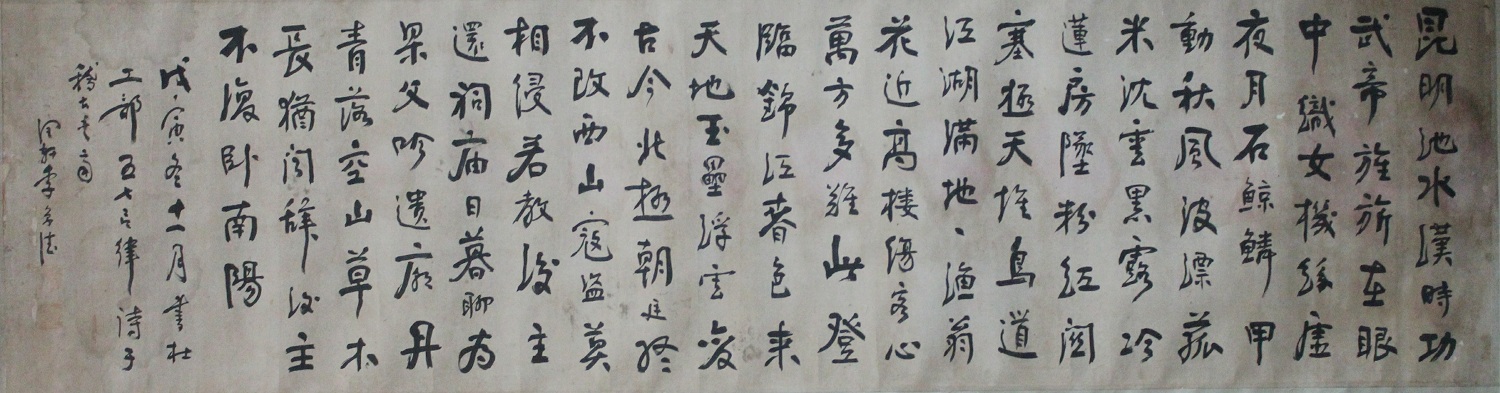 昆明池水漢時功
武帝旌旂在眼
中織女機絲虛
夜月石鯨鱗甲
動秋風波漂菰
米沈雲黑露冷
蓮房墜粉紅關
塞極天惟鳥道
江湖滿地一漁翁
花近高樓傷客心
萬方多難此登
臨錦江春色来
天地玉壘浮云變
古今北極朝廷終
不改西山寇盜莫
相侵若教後主
還祠庙日暮聊為
梁父吟遺廟丹
青落空山草木
長猶聞辭後主
不復卧南陽
戊寅冬十一月書杜
工部五七言律詩于